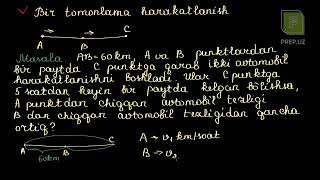 ✓ Bir tomonlama harakatlanish
PREP.UZ
A B C
Masala AB=60km, A va B punktlardan
bir paytda C punktga qarab ikki avtomobil
harakatlanishni boshladi. Ular C punktga
5 soatdan keyin bir paytda kelgan bo'lishsa,
A punktdan chiqqan avtomobil tezligi
B dan chiqqan avtomobil tezligidan qancha
ortiq?
A → v₁ km/soat
A B C
60km
B → v₂